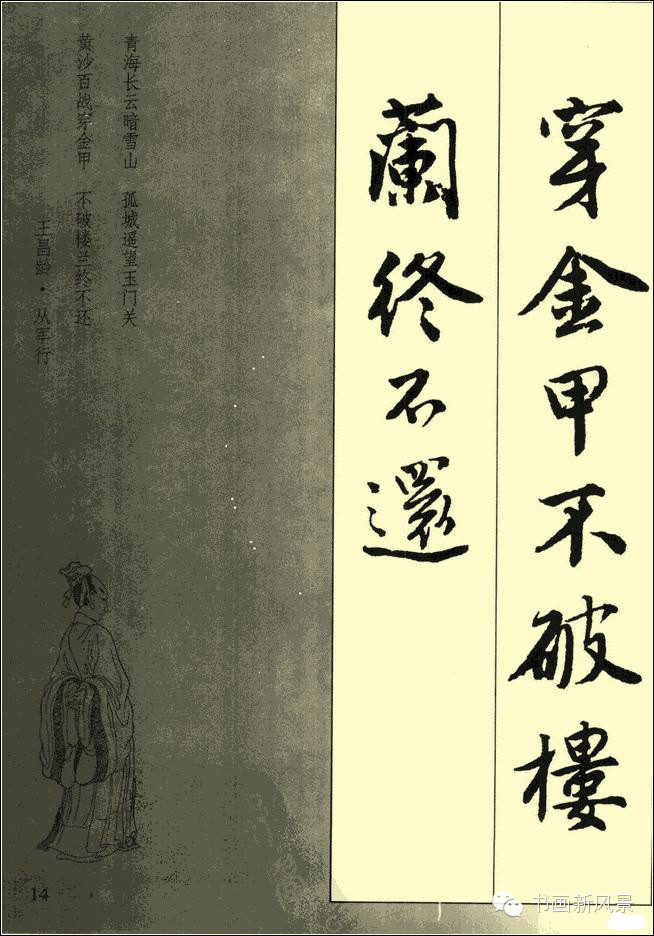 穿金甲不破樓
蘭終不還
青海长云暗雪山 孤城遥望玉门关
黄沙百战穿金甲 不破楼兰终不还
王昌龄·从军行
14
书画新风景